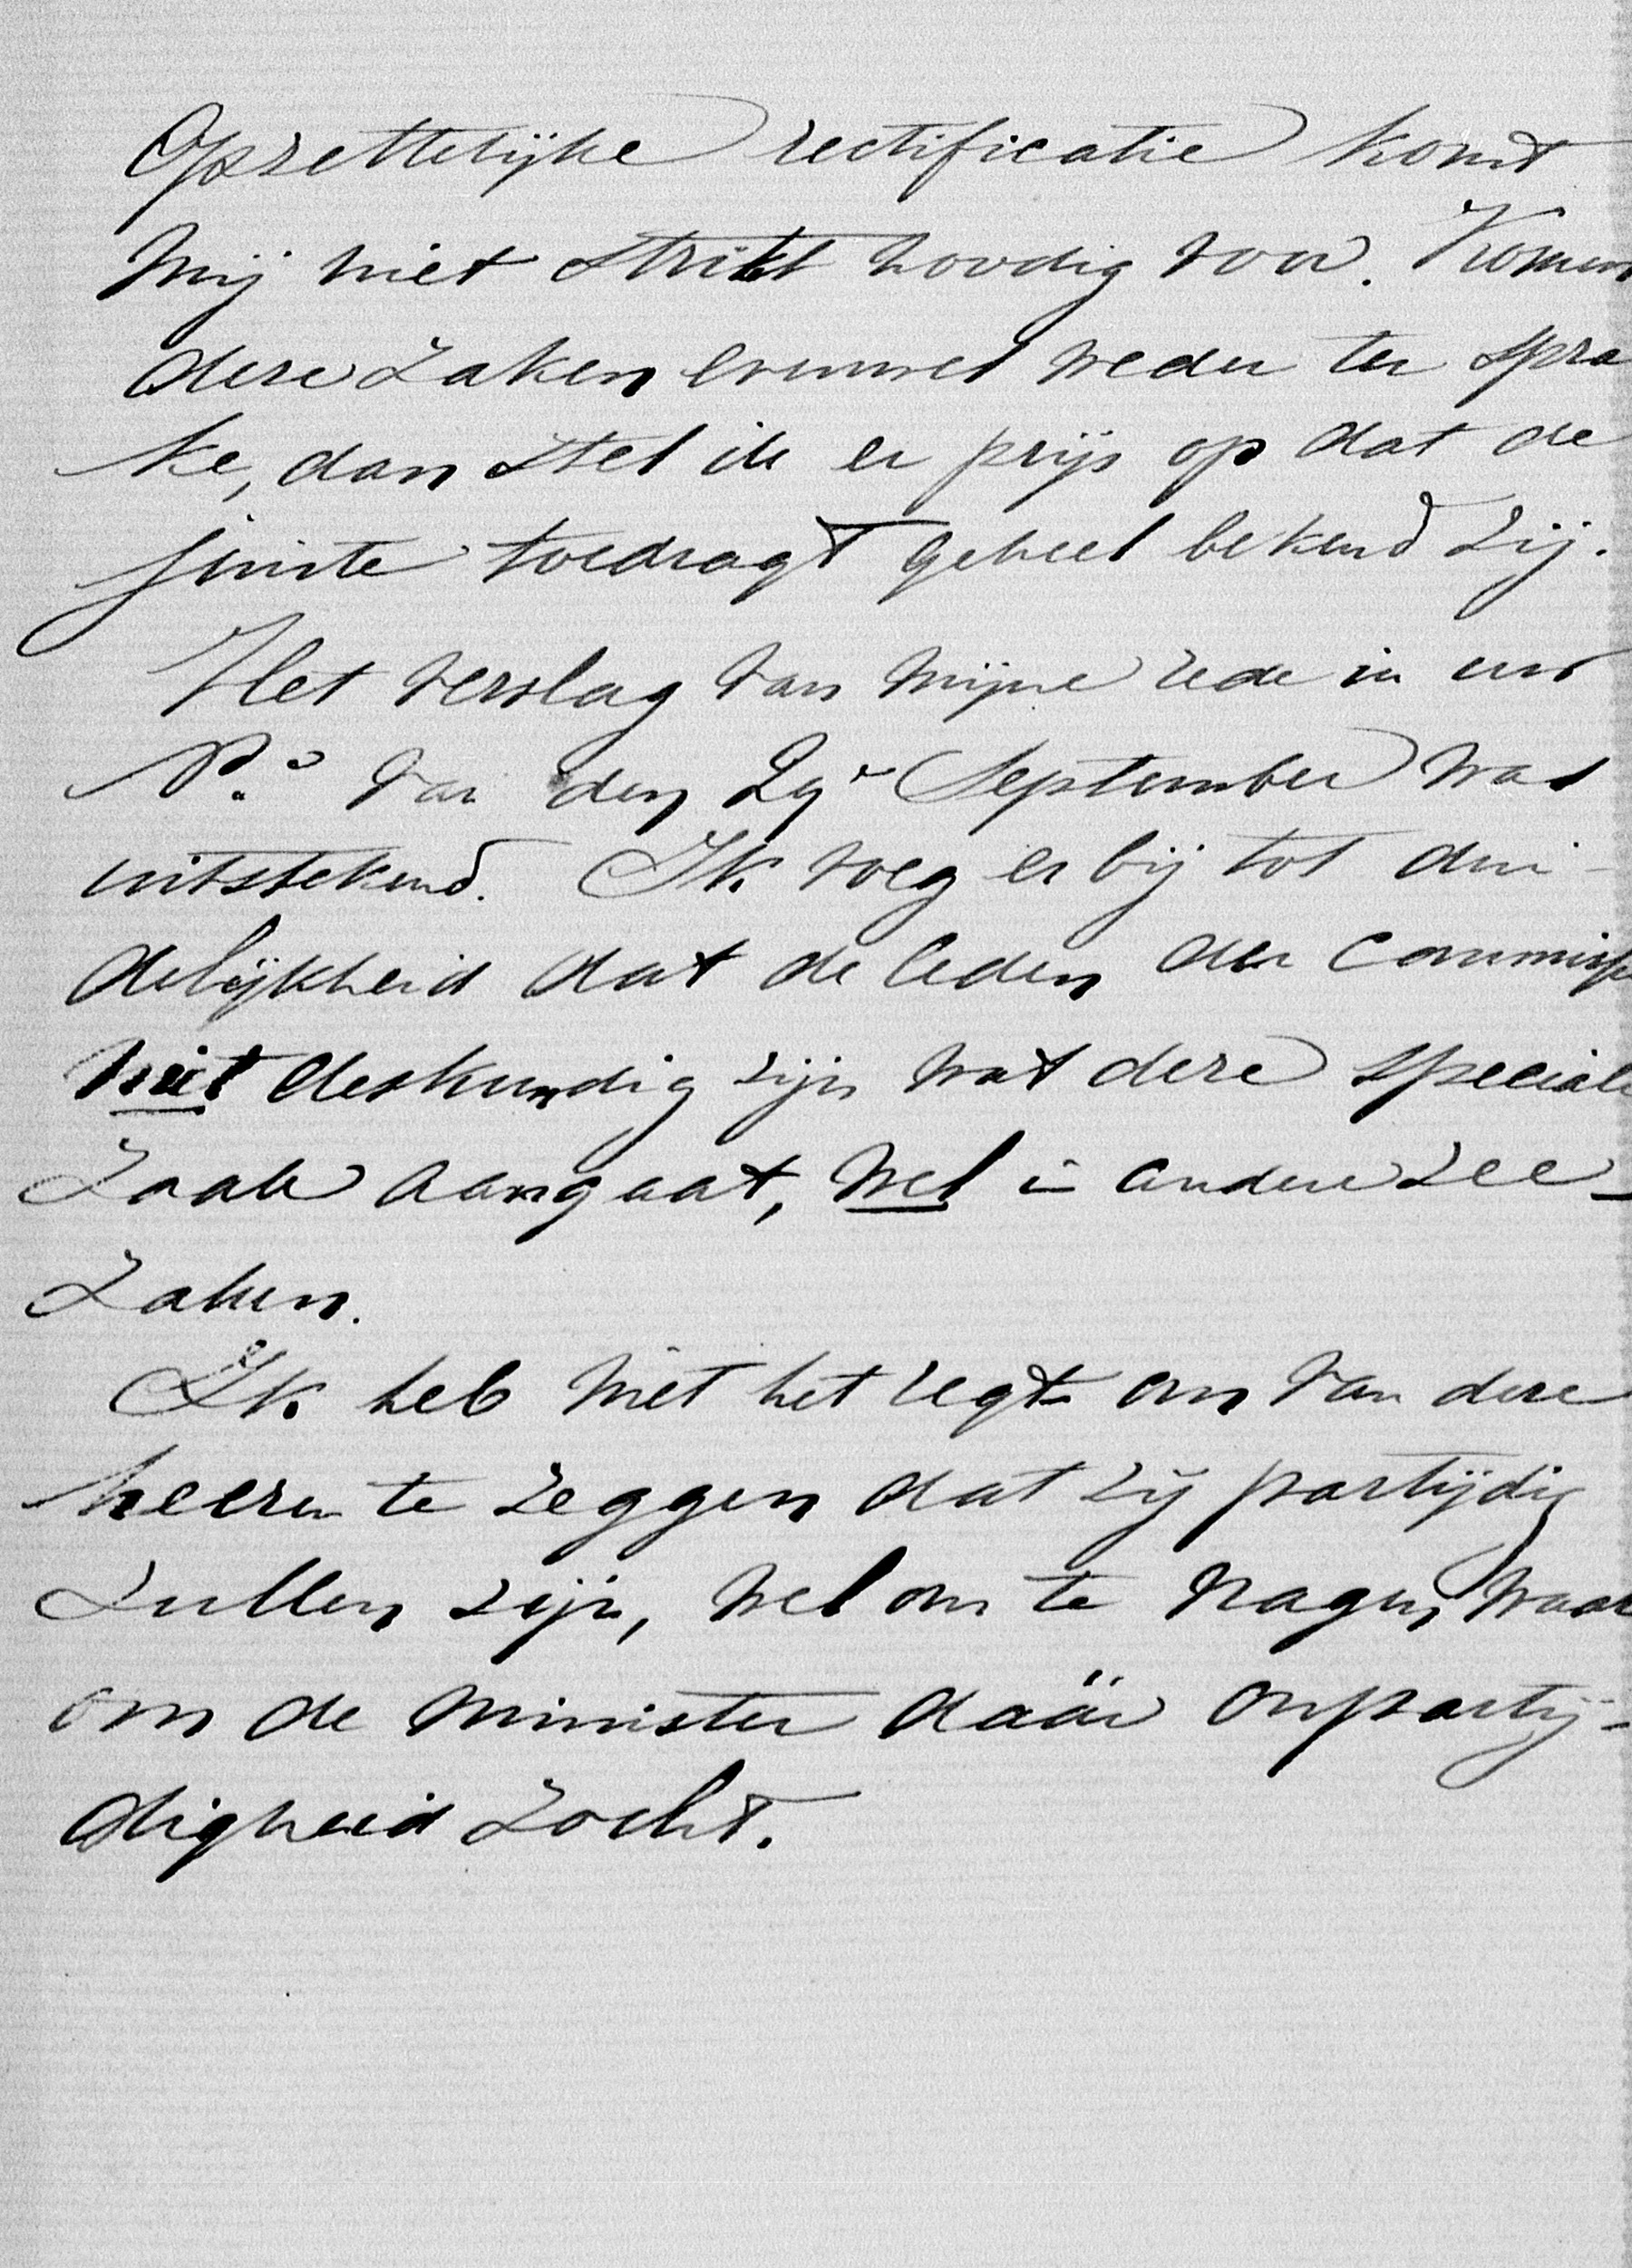 Opzettelijke rectificatie komt
mij niet strikt noodig voor. Komen
deze zaken evenwel weder ter spra
ke, dan stel ik er prijs op dat de
juiste toedragt geheel bekend zij.
Het verslag van mijne rede in uw
No. van den 29n September was
uitstekend. Ik voeg er bij tot dui-
delijkheid dat de leden der Commissie
niet deskundig zijn wat deze speciale
Zaak aangaat, wel in andere zee-
Zaken.
Ik heb niet het regt om van deze
heeren te zeggen dat zij partijdig
Zullen zijn, wel om te vragen waar
om de minister dáár onpartij-
digheid zocht.